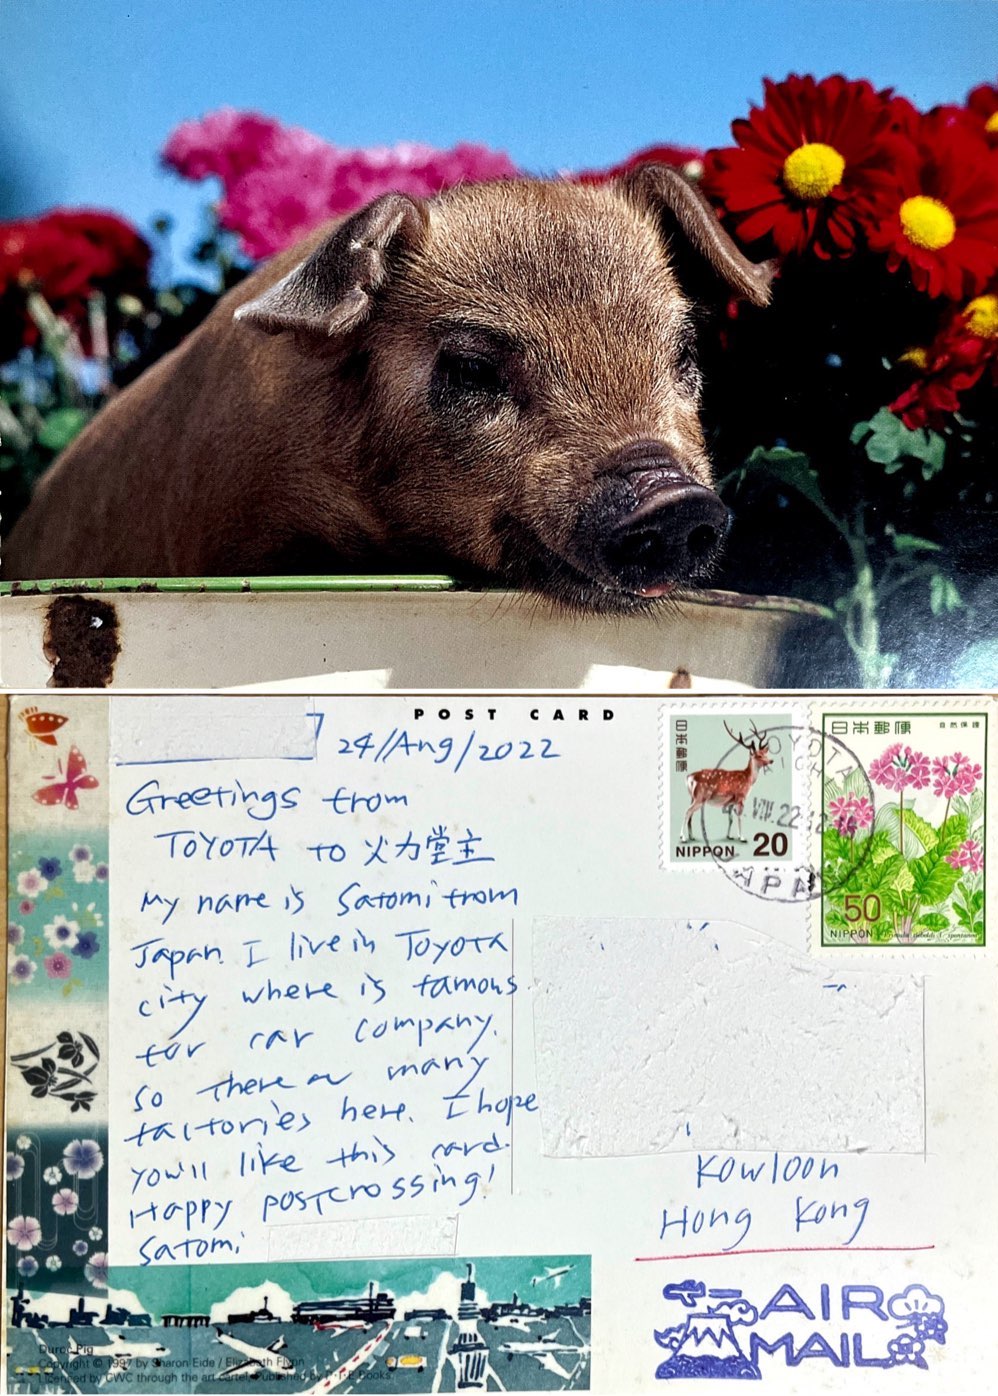 POST CARD
24/Aug/2022
Greetings from
TOYOTA to 火力堂主
My name is Satomi from
Japan. I live in TOYOTA
city where is famous
for car company.
So there are many
factories here. I hope
you'll like this card.
Happy postcrossing!
Satomi
日本郵便
NIPPON 20
日本郵便 自然保護
50
NIPPON
TOYOTA
AICHI
VIII.22
JAPAN
Kowloon
Hong Kong
AIR
MAIL
Duroc Pig
Copyright © 1997 by Sharon Eide / Elizabeth Flynn
Licensed by CWC through the art cartel, Published by P·I·E Books.